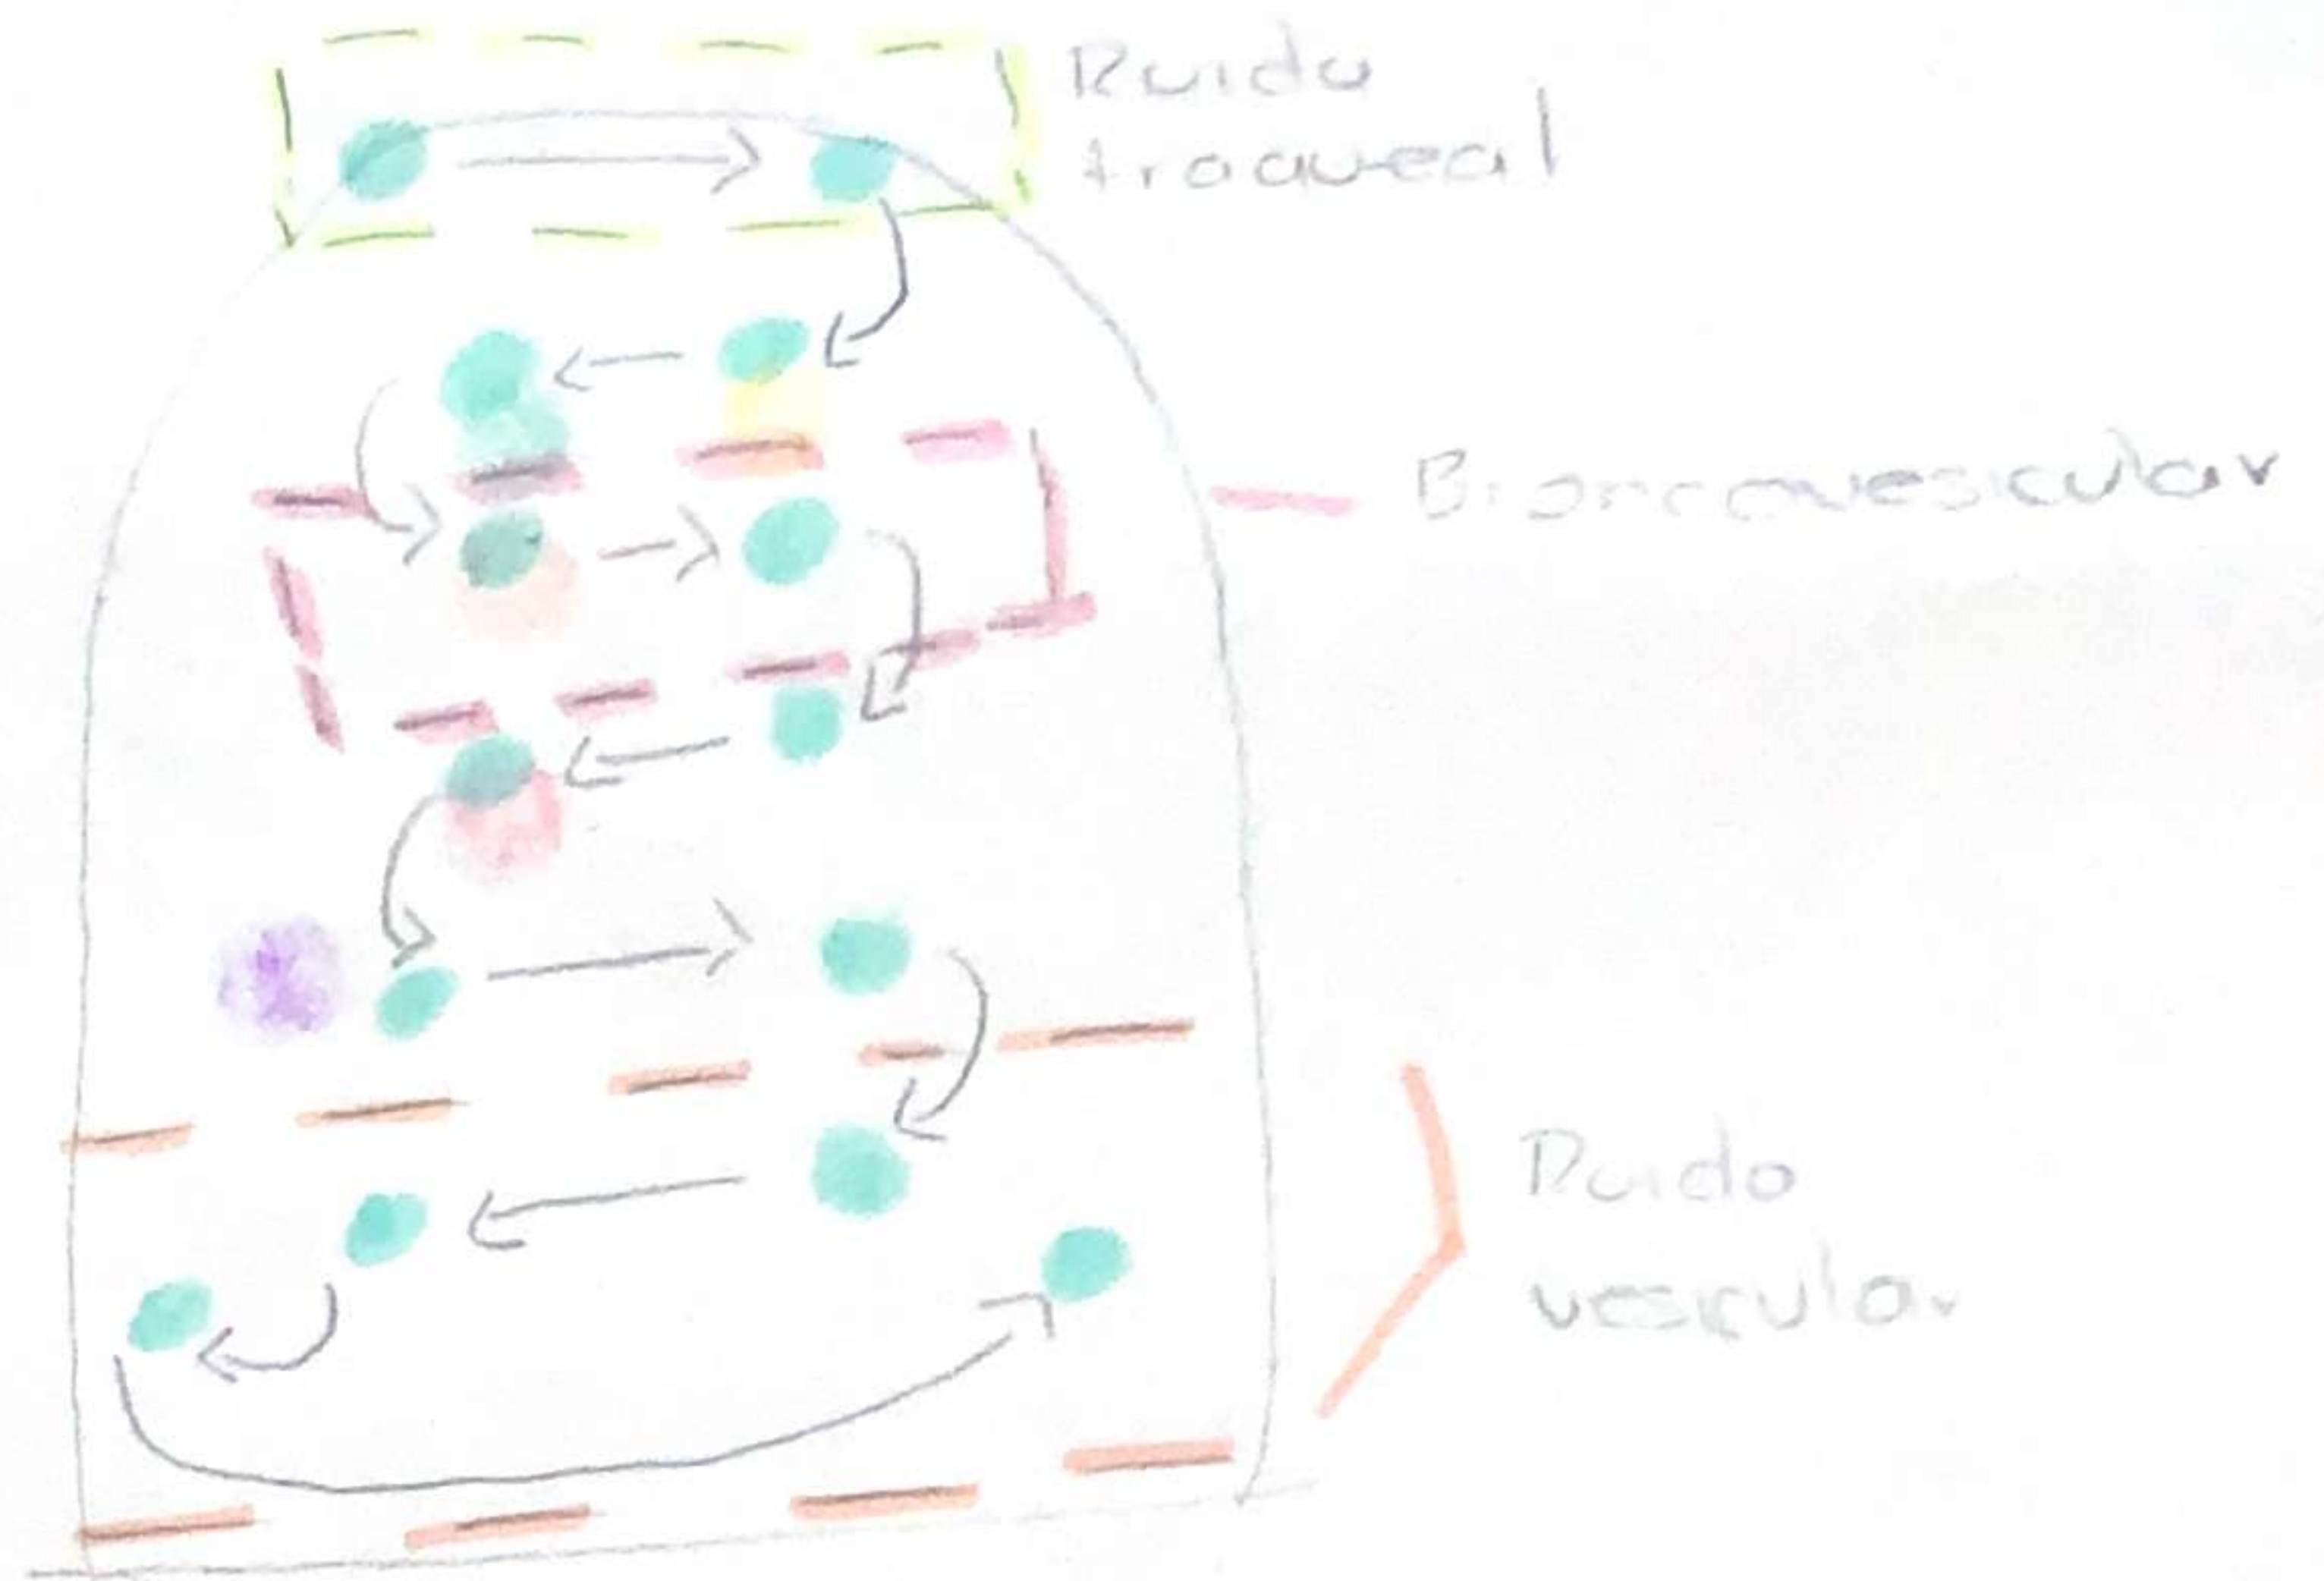 Ruido
traqueal
Broncovesicular
Ruido
vesicular